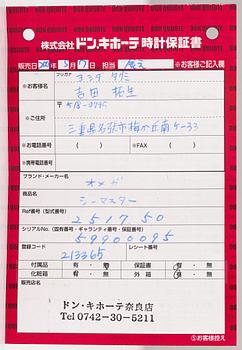 株式会社 ドン.キホーテ 時計保証書
販売日 年 5月 日 担当 ※お客様ご記入欄
フリガナ ヨシダ
※お客様名 吉田 拓生
〒518-0745
※ご住所 三重県名張市梅が丘南4-33
※お電話番号 ( ) ※FAX ( )
※携帯電話番号
ブランド・メーカー名 オメガ
商品名 シーマスター
Ref番号(型式番号) 2517 50
シリアルNo.(固有番号・ギャランティ番号・保証番号) 59900095
登録コード レシート番号
213365
付属品 有・無 保証書 有・無
化粧箱 有・無 外箱 有・無
販売店名
ドン・キホーテ奈良店
Tel 0742-30-5211
⑤お客様控え